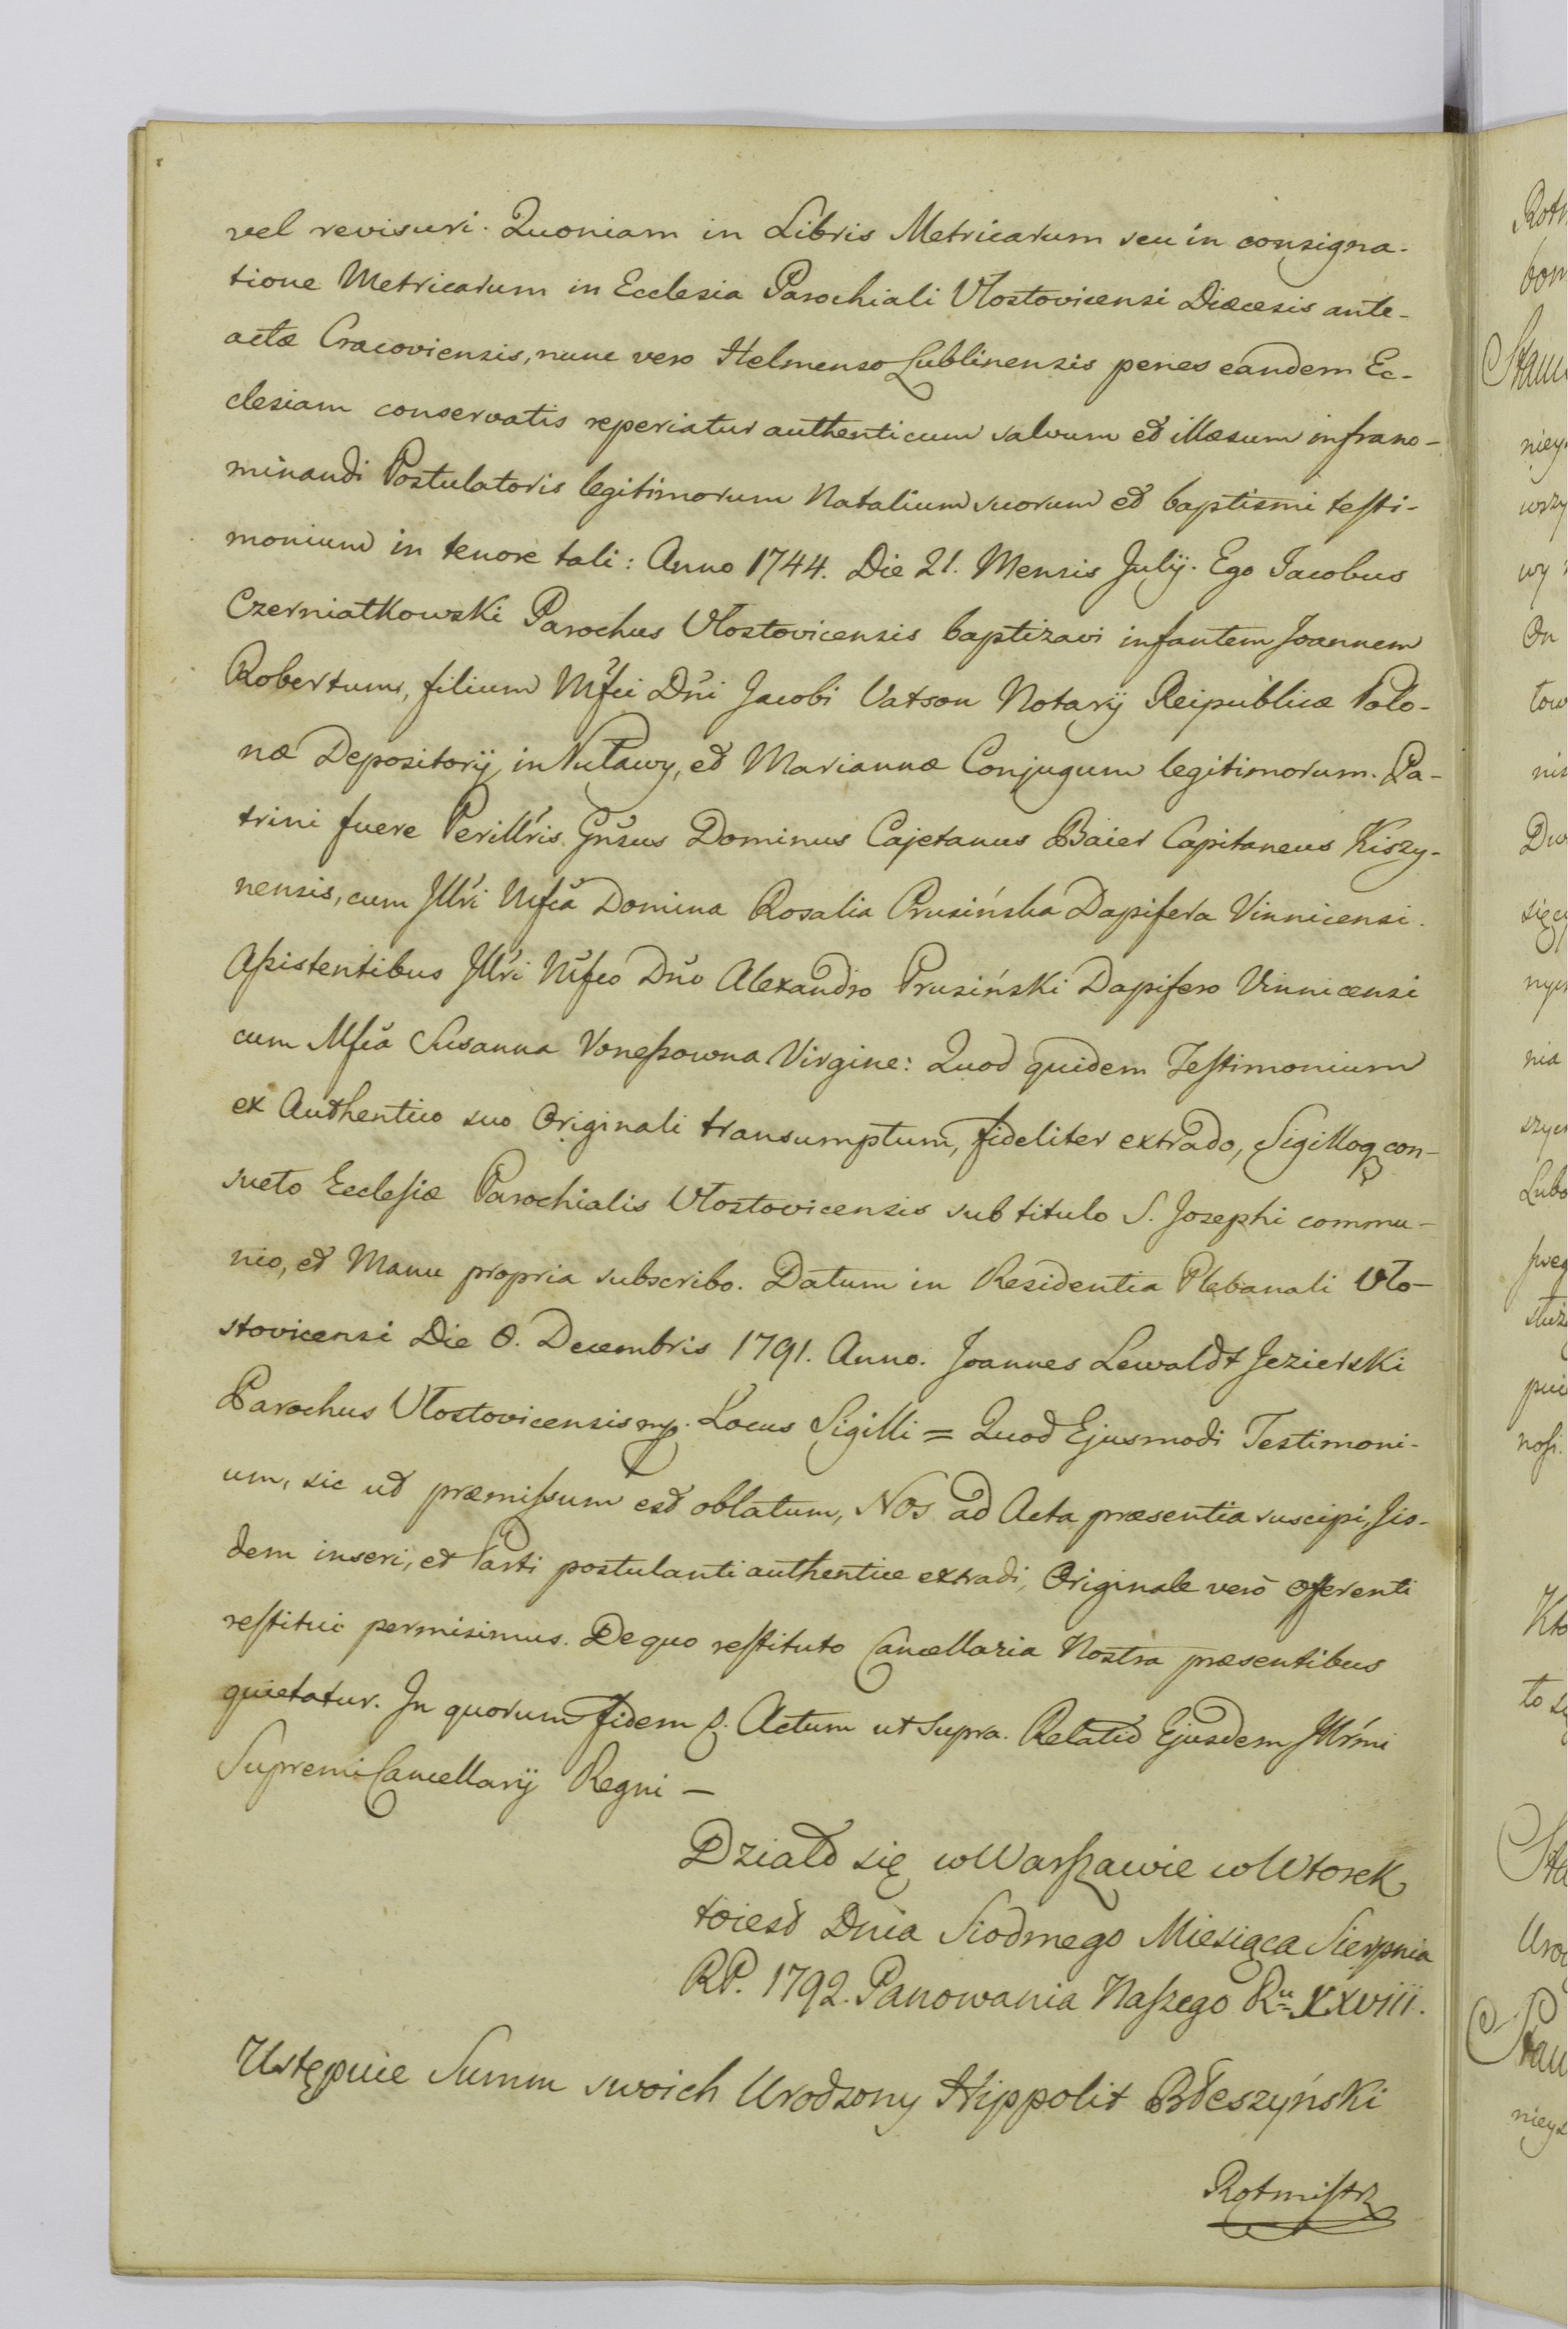 vel revisuri. Quoniam in Libris Metricarum seu in consigna-
tione Metricarum in Ecclesia Parochiali Vłostovicensi Diæcesis ante-
actæ Cracoviensis, nunc vero Helmenso Lublinensis penes eandem Ec-
clesiam conservatis reperiatur authenticum salvum et illæsum infrano-
minandi Postulatoris legitimorum Natalium suorum et baptismi testi-
monium in tenore tali: Anno 1744. Die 21. Mensis Julij. Ego Jacobus
Czerniatkowski Parochus Vłostovicensis baptizavi infantem Joannem
Robertum, filium Mfci Dni Jacobi Vatson Notarij Reipublicæ Polo-
næ Depositorij in Puławy, et Mariannæ Conjugum legitimorum. Pa-
trini fuere Perillris Gnsus Dominus Cajetanus Baier Capitaneus Kiszy-
nensis, cum Jllri Mfcâ Domina Rosalia Prusińska Dapifera Vinnicensi.
Assistentibus Jllri Mfco Dno Alexandro Prusiński Dapifero Vinnicensi
cum Mfcâ Susanna Vonessowna Virgine: Quod quidem Testimonium
ex Authentico suo Originali transumptum, fideliter extrado, Sigilloq con-
sueto Ecclesiæ Parochialis Vłostovicensis sub titulo S. Josephi commu-
nio, et Manu propria subscribo. Datum in Residentia Plebanali Vło-
stovicensi Die 8. Decembris 1791. Anno. Joannes Lewaldt Jezierski
Parochus Vłostovicensis mp. Locus Sigilli = Quod Ejusmodi Testimoni-
um, sic ut præmissum est oblatum, Nos ad Acta præsentia suscipi, Jis-
dem inseri, et Parti postulanti authentice extradi, Originale verò offerenti
restitui permisimus. De quo restituto Cancellaria Nostra præsentibus
quietatur. In quorum fidem p. Actum ut supra. Relatio Ejusdem Jllrmi
Supremi Cancellarij Regni –
Działo się w Warszawie w Wtorek
toiest Dnia Siodmego Miesiąca Sierpnia
RP. 1792. Panowania Naszego Ru XXVIII.
Ustępuie Summ swoich Urodzony Hippolit Błeszyński
Rotmistrz